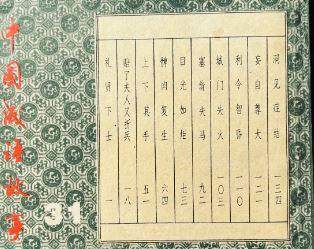 中国成语故事
31
洞见症结 一三四
妄自尊大 一二一
利令智昏 一一〇
城门失火 一〇三
塞翁失马 九二
目光如炬 七三
髀肉复生 六四
上下其手 五一
赔了夫人又折兵 一八
礼贤下士 一